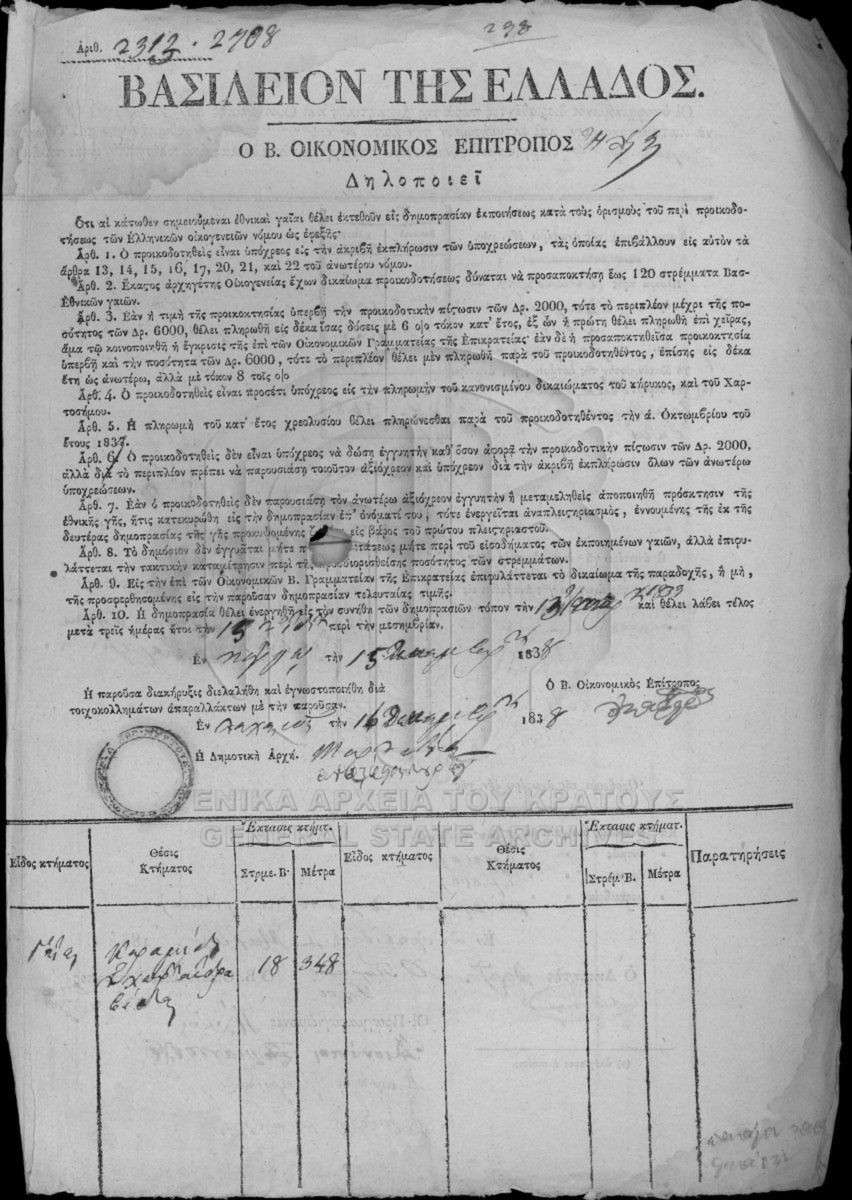 Ἀριθ. 2312 · 2708
298
ΒΑΣΙΛΕΙΟΝ ΤΗΣ ΕΛΛΑΔΟΣ.
Ο Β. ΟΙΚΟΝΟΜΙΚΟΣ ΕΠΙΤΡΟΠΟΣ
Δηλοποιεῖ
Ὅτι αἱ κάτωθεν σημειούμεναι ἐθνικαὶ γαῖαι θέλει ἐκτεθοῦν εἰς δημοπρασίαν ἐκποιήσεως κατὰ τοὺς ὁρισμοὺς τοῦ περὶ προικοδο-
τήσεως τῶν Ἑλληνικῶν οἰκογενειῶν νόμου ὡς ἐφεξῆς·
Ἀρθ. 1. Ὁ προικοδοτηθεὶς εἶναι ὑπόχρεος εἰς τὴν ἀκριβῆ ἐκπλήρωσιν τῶν ὑποχρεώσεων, τὰς ὁποίας ἐπιβάλλουν εἰς αὐτὸν τὰ
ἄρθρα 13, 14, 15, 16, 17, 20, 21, καὶ 22 τοῦ ἀνωτέρω νόμου.
Ἀρθ. 2. Ἕκαστος ἀρχηγέτης Οἰκογενείας ἔχων δικαίωμα προικοδοτήσεως δύναται νὰ προσαποκτήσῃ ἕως 120 στρέμματα Βασ·
Ἐθνικῶν γαιῶν.
Ἀρθ. 3. Ἐὰν ἡ τιμὴ τῆς προικοκτησίας ὑπερβῇ τὴν προικοδοτικὴν πίστωσιν τῶν Δρ. 2000, τότε τὸ περιπλέον μέχρι τῆς πο-
σότητος τῶν Δρ. 6000, θέλει πληρωθῆ εἰς δέκα ἴσας δόσεις μὲ 6 ο|ο τόκον κατ' ἔτος, ἐξ ὧν ἡ πρώτη θέλει πληρωθῆ ἐπὶ χεῖρας,
ἅμα τῷ κοινοποιηθῇ ἡ ἔγκρισις τῆς ἐπὶ τῶν Οἰκονομικῶν Γραμματείας τῆς Ἐπικρατείας· ἐὰν δὲ ἡ προσαποκτηθεῖσα προικοκτησία
ὑπερβῇ καὶ τὴν ποσότητα τῶν Δρ. 6000, τότε τὸ περιπλέον θέλει μὲν πληρωθῆ παρὰ τοῦ προικοδοτηθέντος, ἐπίσης εἰς δέκα
ἔτη ὡς ἀνωτέρω, ἀλλὰ μὲ τόκον 8 τοῖς ο|ο
Ἀρθ. 4. Ὁ προικοδοτηθεὶς εἶναι προσέτι ὑπόχρεος εἰς τὴν πληρωμὴν τοῦ κανονισμένου δικαιώματος τοῦ κήρυκος, καὶ τοῦ Χαρ-
τοσήμου.
Ἀρθ. 5. Ἡ πληρωμὴ τοῦ κατ' ἔτος χρεολυσίου θέλει πληρώνεσθαι παρὰ τοῦ προικοδοτηθέντος τὴν ά. Ὀκτωμβρίου τοῦ
ἔτους 183
Ἀρθ. 6. Ὁ προικοδοτηθεὶς δὲν εἶναι ὑπόχρεος νὰ δώσῃ ἐγγυητὴν καθ' ὅσον ἀφορᾷ τὴν προικοδοτικὴν πίστωσιν τῶν Δρ. 2000,
ἀλλὰ διὰ τὸ περιπλέον πρέπει νὰ παρουσιάσῃ τοιοῦτον ἀξιόχρεον καὶ ὑπόχρεον διὰ τὴν ἀκριβῆ ἐκπλήρωσιν ὅλων τῶν ἀνωτέρω
ὑποχρεώσεων.
Ἀρθ. 7. Ἐὰν ὁ προικοδοτηθεὶς δὲν παρουσιάσῃ τὸν ἀνωτέρω ἀξιόχρεον ἐγγυητὴν ἢ μεταμεληθεὶς ἀποποιηθῇ πρόσκτησιν τῆς
ἐθνικῆς γῆς, ἥτις κατεκυρώθη εἰς τὴν δημοπρασίαν ἐπ' ὀνόματί του, τότε ἐνεργεῖται ἀναπλειστηριασμὸς, ἐννουμένης τῆς ἐκ τῆς
δευτέρας δημοπρασίας τῆς γῆς προκυψομένης εἰς βάρος τοῦ πρώτου πλειστηριαστοῦ.
Ἀρθ. 8. Τὸ δημόσιον δὲν ἐγγυᾶται μήτε π τάσεως μήτε περὶ τοῦ εἰσοδήματος τῶν ἐκποιημένων γαιῶν, ἀλλὰ ἐπιφυ-
λάττεται τὴν τακτικὴν καταμέτρησιν περὶ τῆς προσδιορισθείσης ποσότητος τῶν στρεμμάτων.
Ἀρθ. 9. Εἰς τὴν ἐπὶ τῶν Οἰκονομικῶν Β. Γραμματείαν τῆς Ἐπικρατείας ἐπιφυλάττεται τὸ δικαίωμα τῆς παραδοχῆς, ἢ μὴ,
τῆς προσφερθησομένης εἰς τὴν παροῦσαν δημοπρασίαν τελευταίας τιμῆς.
Ἀρθ. 10. Ἡ δημοπρασία θέλει ἐνεργηθῆ εἰς τὸν συνήθη τῶν δημοπρασιῶν τόπον τὴν 13 καὶ θέλει λάβει τέλος
μετὰ τρεῖς ἡμέρας ἤτοι τὴν 15 περὶ τὴν μεσημβρίαν.
Ἐν τὴν 15 1838
Ὁ Β. Οἰκονομικὸς Ἐπίτροπος
Ἡ παροῦσα διακήρυξις διελαλήθη καὶ ἐγνωστοποιήθη διὰ
τοιχοκολλημάτων ἀπαραλλάκτων μὲ τὴν παροῦσαν.
Ἐν τὴν 16 1838
Ἡ Δημοτικὴ Ἀρχή.
ΓΕΝΙΚΑ ΑΡΧΕΙΑ ΤΟΥ ΚΡΑΤΟΥΣ
GENERAL STATE ARCHIVES
Εἶδος κτήματος
Θέσις
Κτήματος
Ἔκτασις κτήματ.
Στρμε. Β·
Μέτρα
Εἶδος κτήματος
Θέσις
Κτήματος
Ἔκτασις κτήματ.
Στρέμ. Β.
Μέτρα
Παρατηρήσεις
18 348